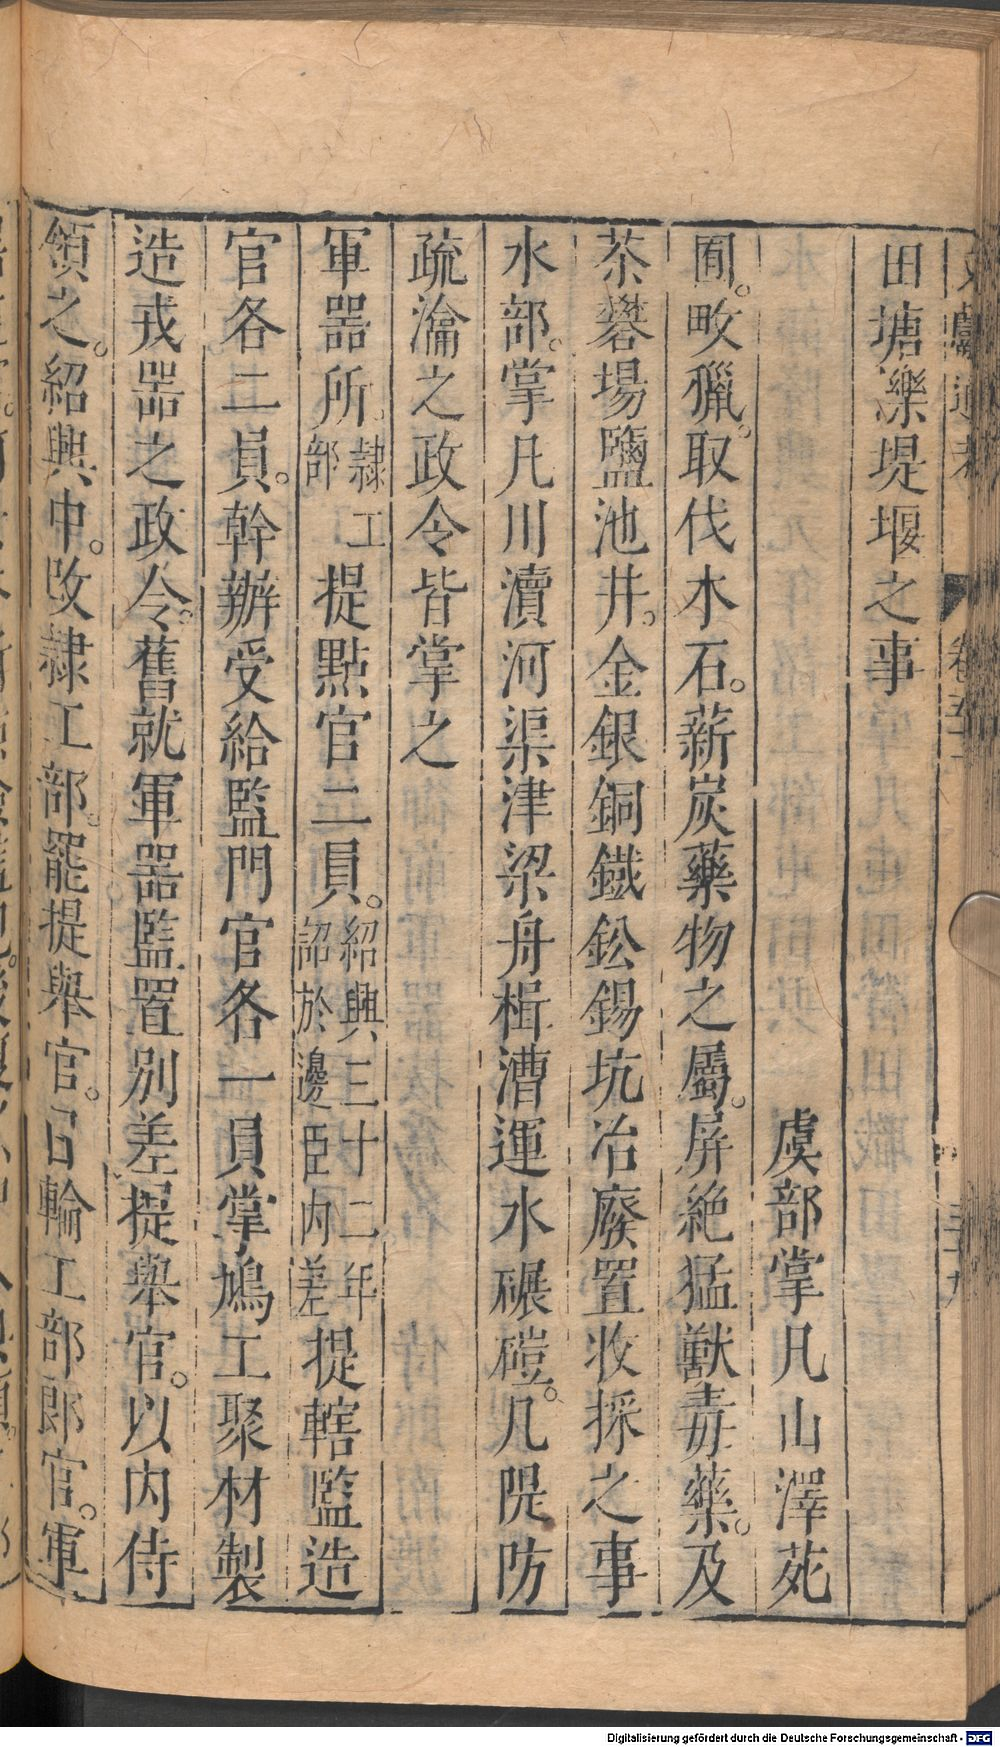 文獻通考 卷五十二 三十九
田塘濼堤堰之事
虞部掌凡山澤苑
囿。畋獵。取伐木石。薪炭藥物之屬。屏絶猛獸毒藥。及
茶礬場鹽池井。金銀銅鐵鈆錫坑冶廢置收採之事
水部。掌凡川瀆河渠津梁舟楫漕運水碾磑。凡隄防
疏瀹之政令皆掌之
軍器所。隷工部提點官二員。紹興三十二年詔於邊臣内差提轄監造
官各二員。幹辦受給監門官各一員掌鳩工聚材製
造戎器之政令。舊就軍器監置別差提舉官。以内侍
領之。紹興中。改隷工部。罷提舉官。日輪工部郎官。軍
Digitalisierung gefördert durch die Deutsche Forschungsgemeinschaft - DFG